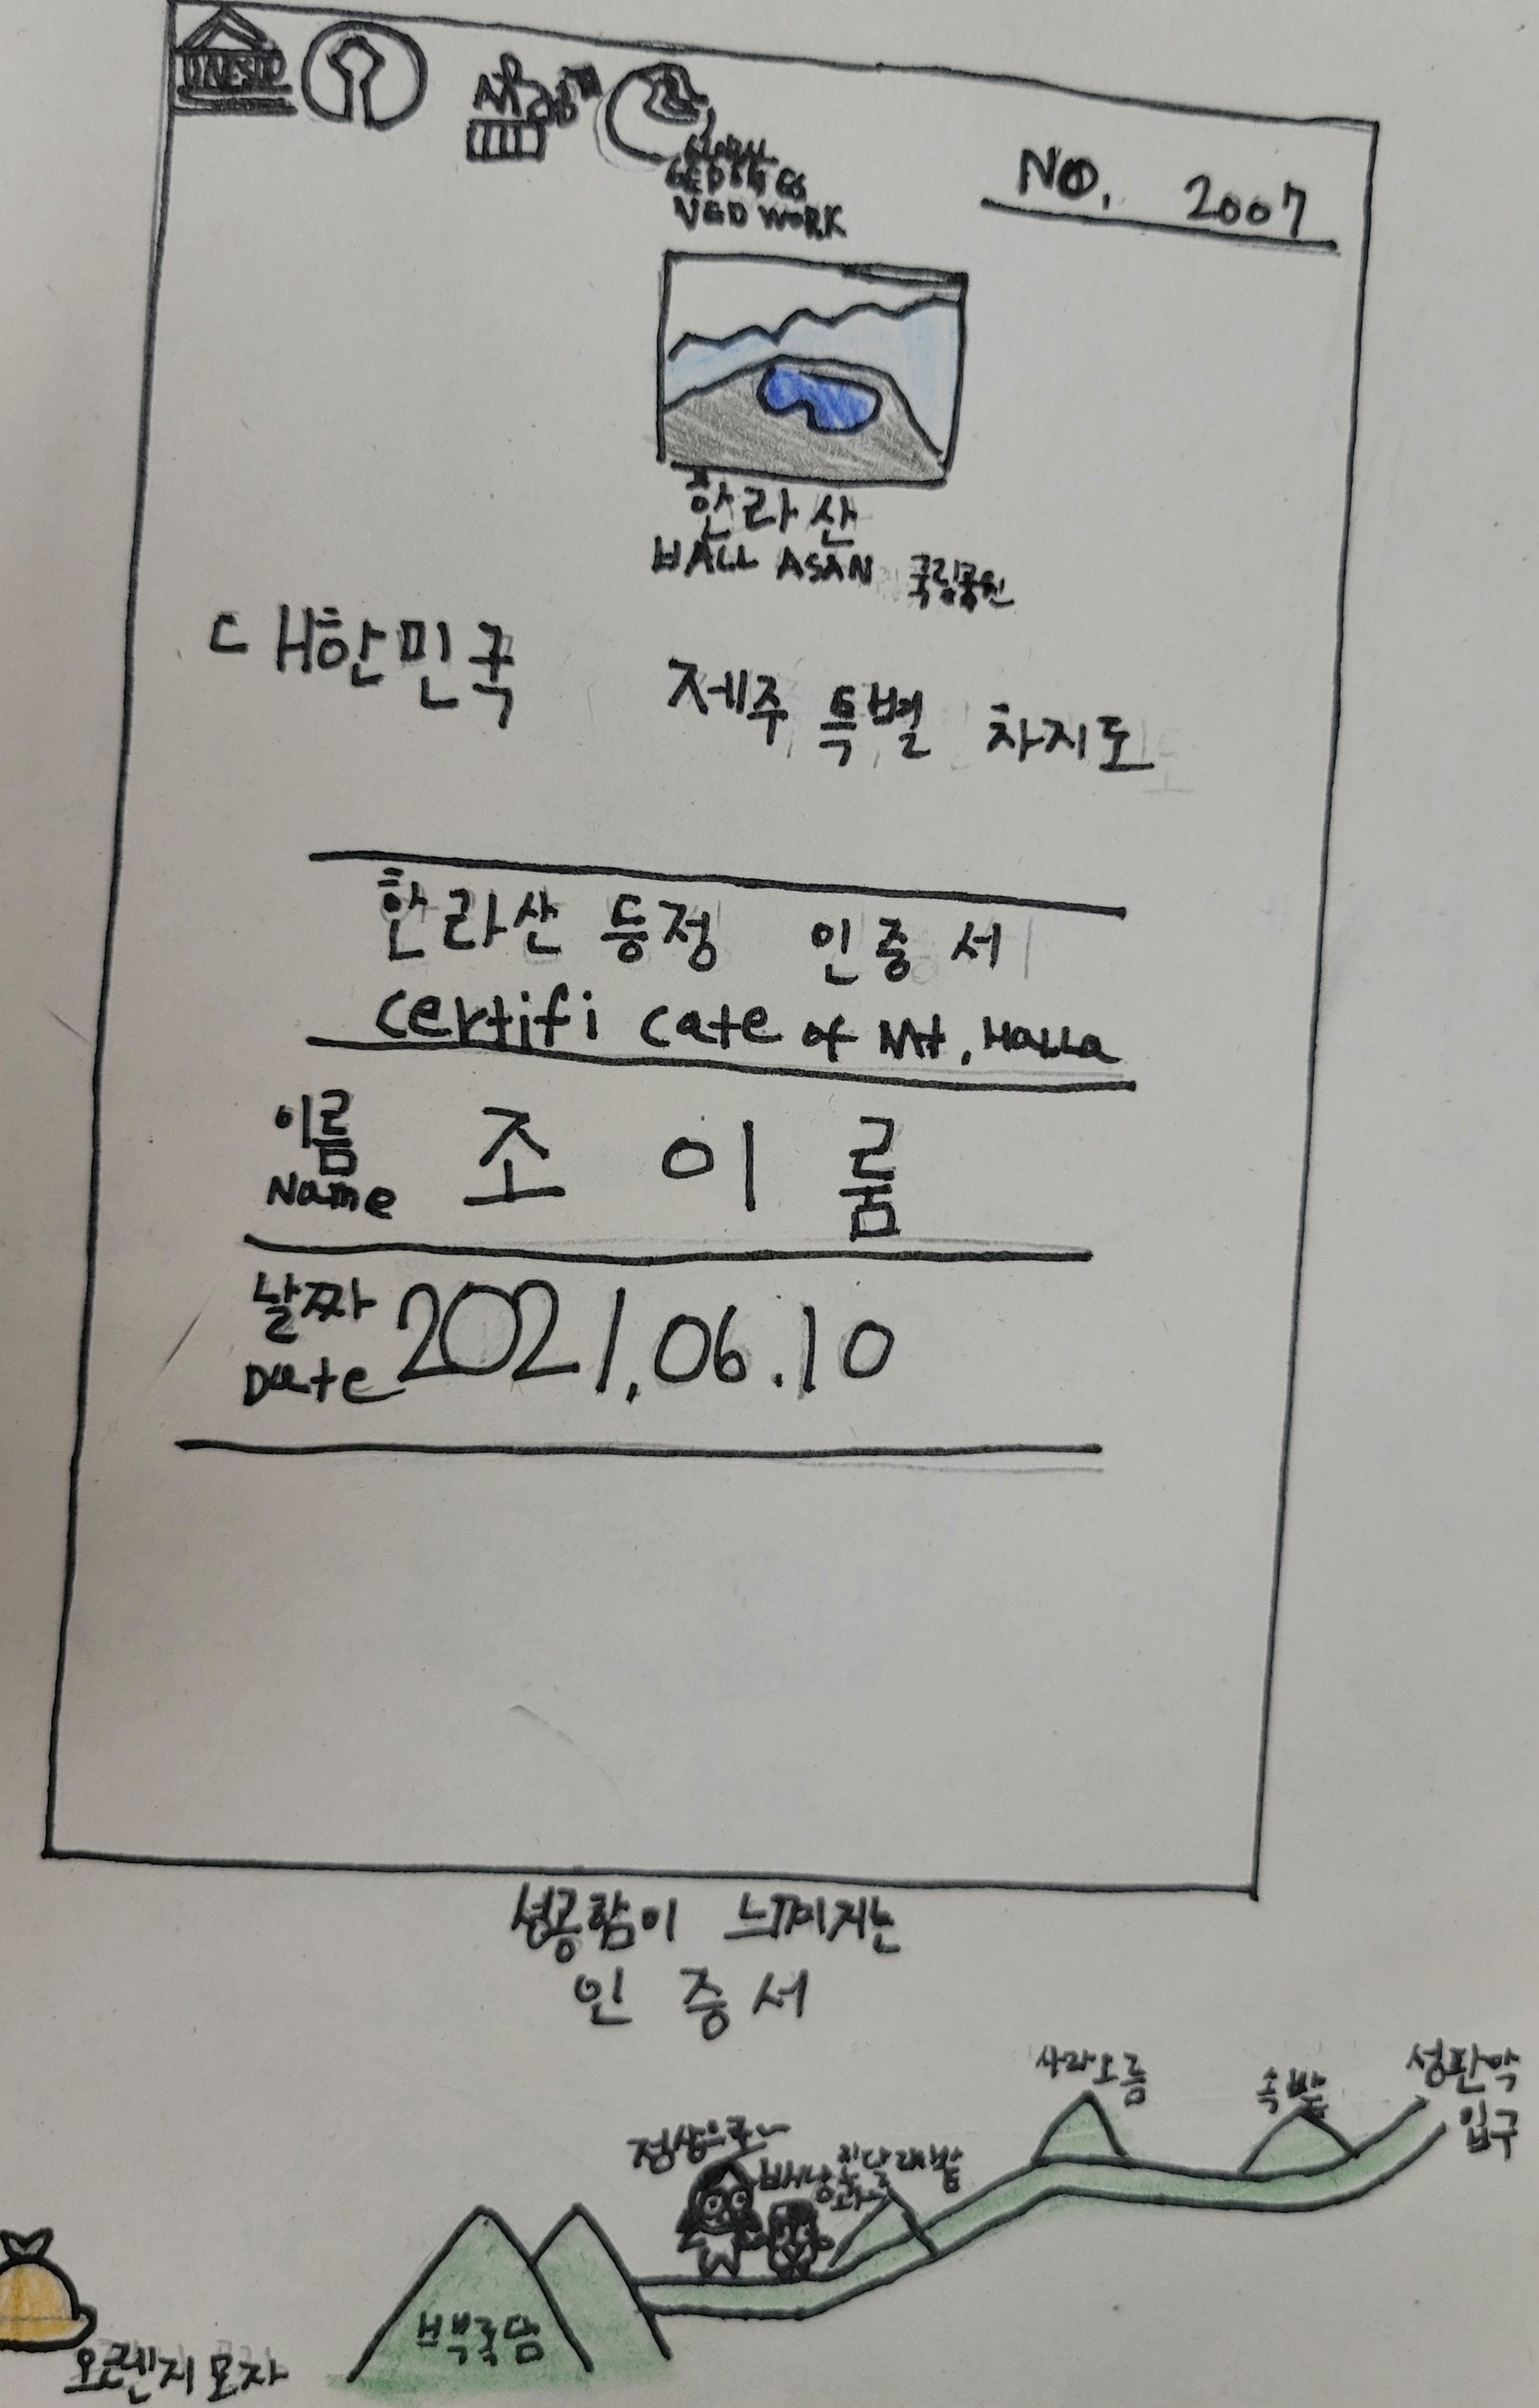 UNESCO
GLOBAL
GEOPARKS
NEDWORK
NO. 2007
한라산
HALL ASAN 국립공원
대한민국 제주 특별 차지도
한라산 등정 인증서
certifi cate of Mt. Halla
이름 조이룸
Name
날짜 2021.06.10
Date
성공함이 느껴지는
인증서
성판악
입구
속밭
사라오름
진달래밭
정상으로~
오렌지 모자